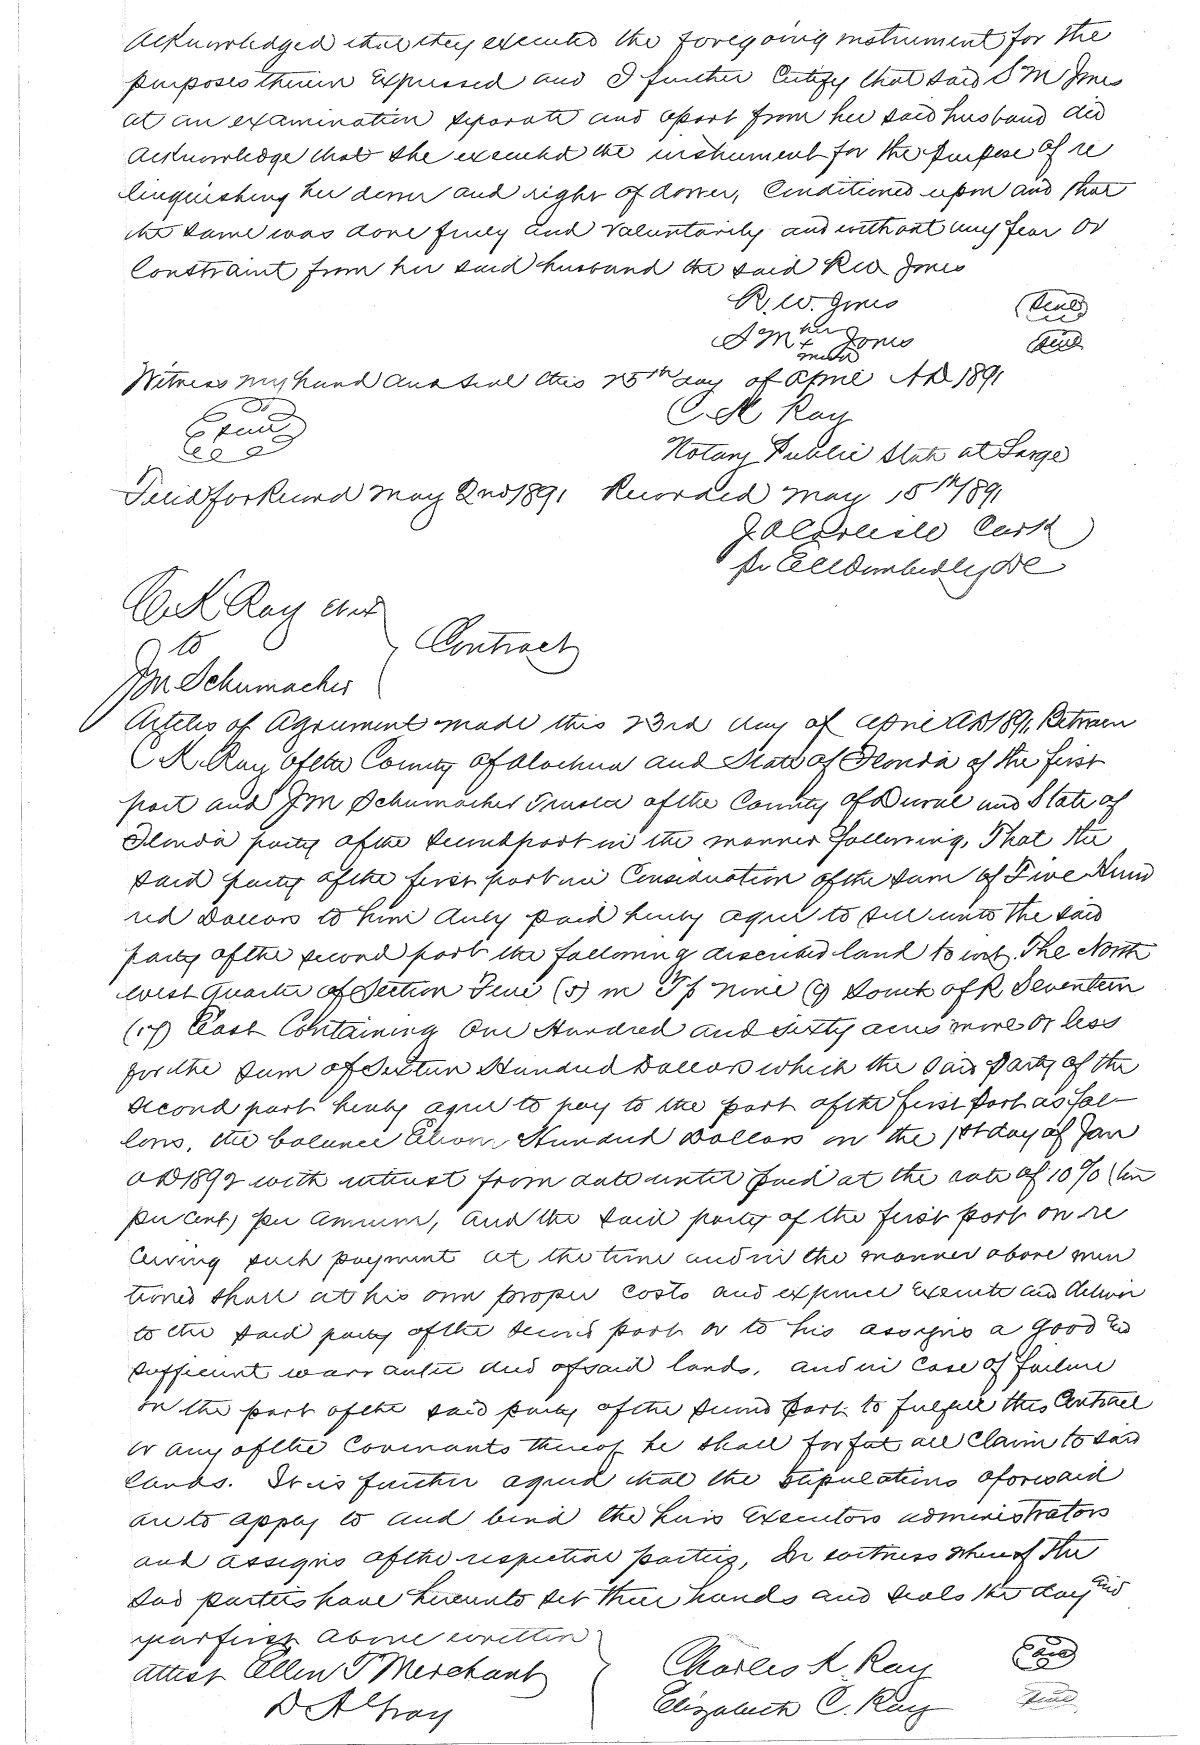 Acknowledged that they executed the foregoing instrument for the
purposes therein Expressed and I further Certify that said S M Jones
at an examination separate and apart from her said husband did
Acknowledge that she executed the instrument for the purpose of re
linquishing her dower and right of dower, Conditioned upon and that
the same was done freely and voluntarily and without any fear or
Constraint from her said husband the said R W Jones
R. W. Jones (Seal)
S M her x mark Jones (Seal)
Witness my hand and seal this 25th day of April AD 1891
C K Ray
(Seal)
Notary Public State at Large
Filed for Record May 2nd 1891 Recorded May 15th 1891
J A Carlisle Clerk
pr Wimberly DC
C. K Ray and
to Contract
J M Schumacher
Articles of Agreement made this 23rd day of April AD 1891, Between
C K. Ray of the County of Alachua and State of Florida of the first
part and J M Schumacher Trustee of the County of Duval and State of
Florida party of the second part in the manner following, That the
said party of the first part in Consideration of the sum of Five Hund
red Dollars to him duly paid hereby agree to sell unto the said
party of the second part the following described land to wit. The North
West Quarter of Section Five (5) in Tp nine (9 South of R Seventeen
(17) East Containing One Hundred and sixty acres more or less
for the sum of Sixteen Hundred Dollars which the said Party of the
second part hereby agree to pay to the part of the first part as fol-
lows, the balance Eleven Hundred Dollars on the 1st day of Jan
AD 1892 with interest from date until paid at the rate of 10% (ten
per cent) per annum, and the said party of the first part on re
ceiving such payment at the time and in the manner above men
tioned shall at his own proper costs and expense Execute and deliver
to the said party of the second part or to his assigns a good and
sufficient warrantee deed of said lands, and in case of failure
on the part of the said party of the second part to fulfill this Contract
or any of the Covenants thereof he shall forfeit all Claim to said
lands. It is further agreed that the stipulations aforesaid
are to apply to and bind the heirs Executors administrators
and assigns of the respective parties, In witness whereof the
said parties have hereunto set their hands and seals the day and
year first above written
attest Ellen T Merchant Charles K. Ray (Seal)
D A Gray Elizabeth C. Ray (Seal)